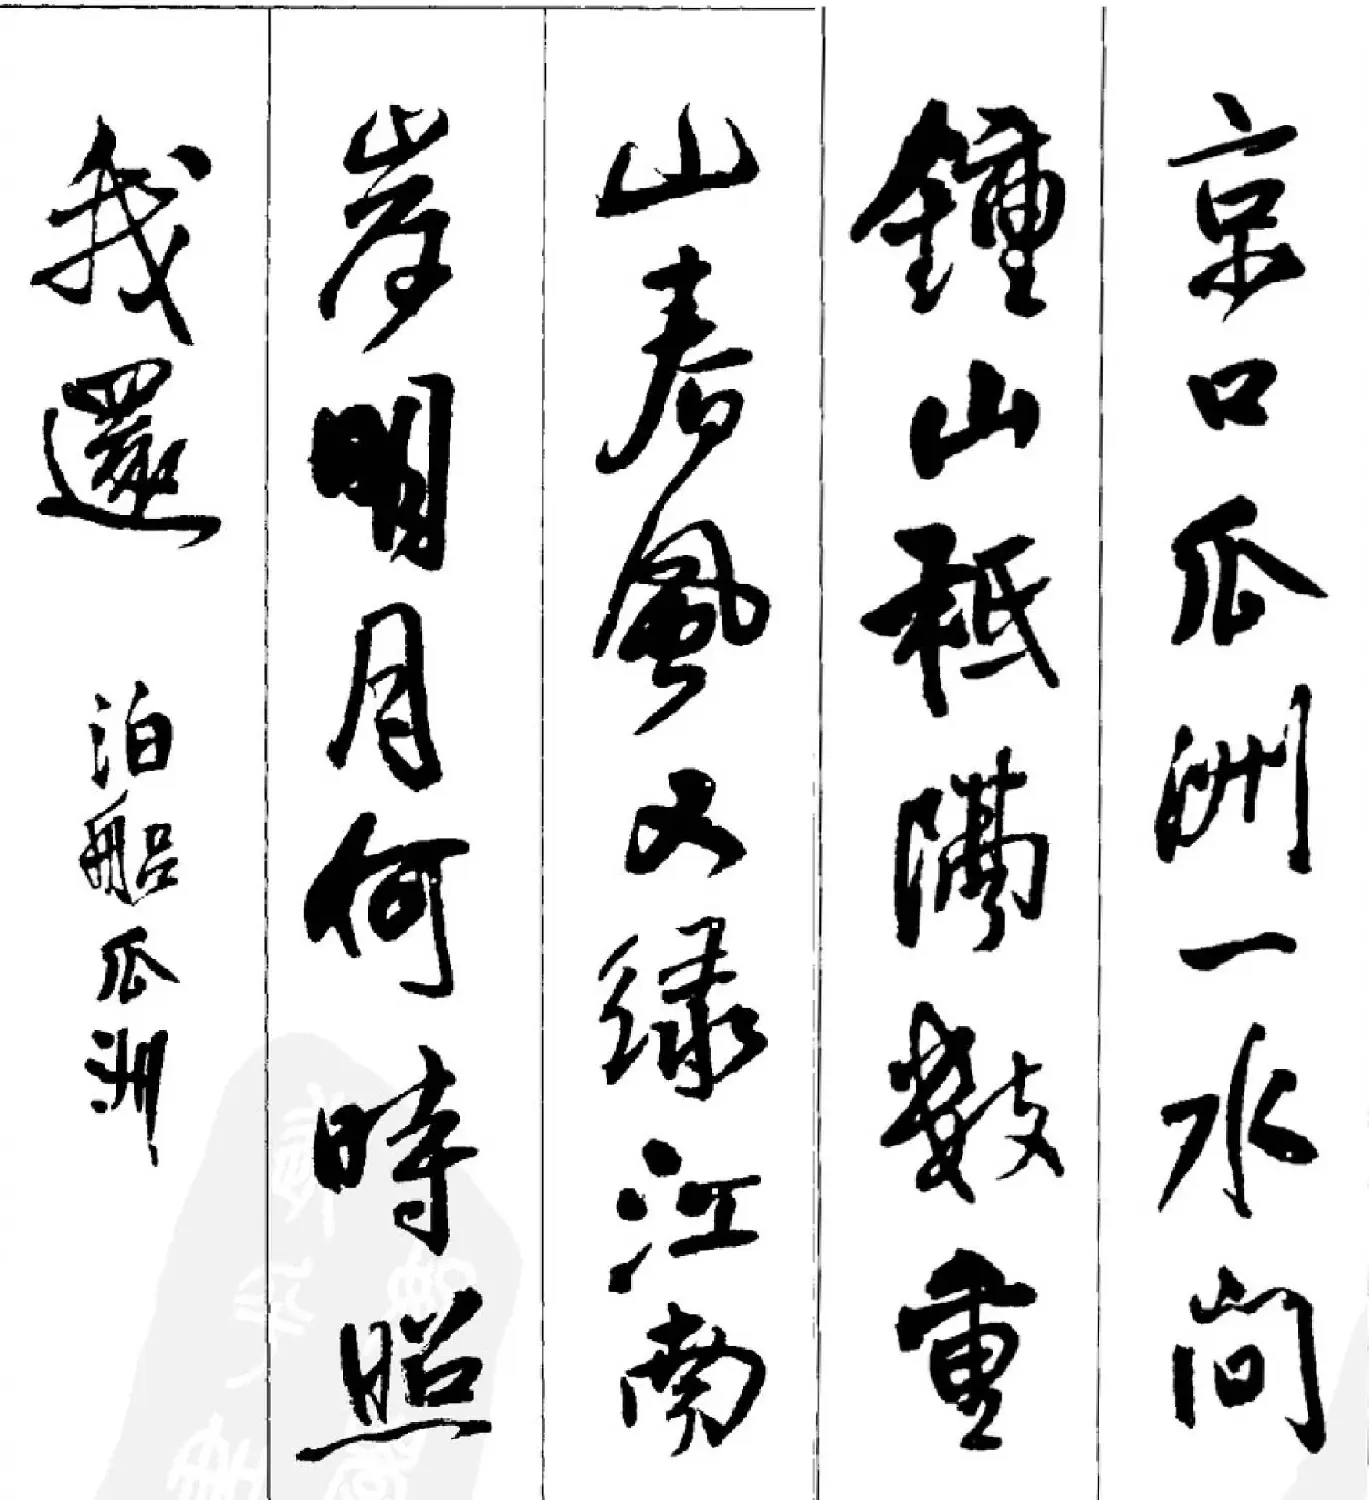 京口瓜洲一水间
鍾山秖隔數重
山春風又绿江南
岸明月何時照
我還 泊船瓜洲